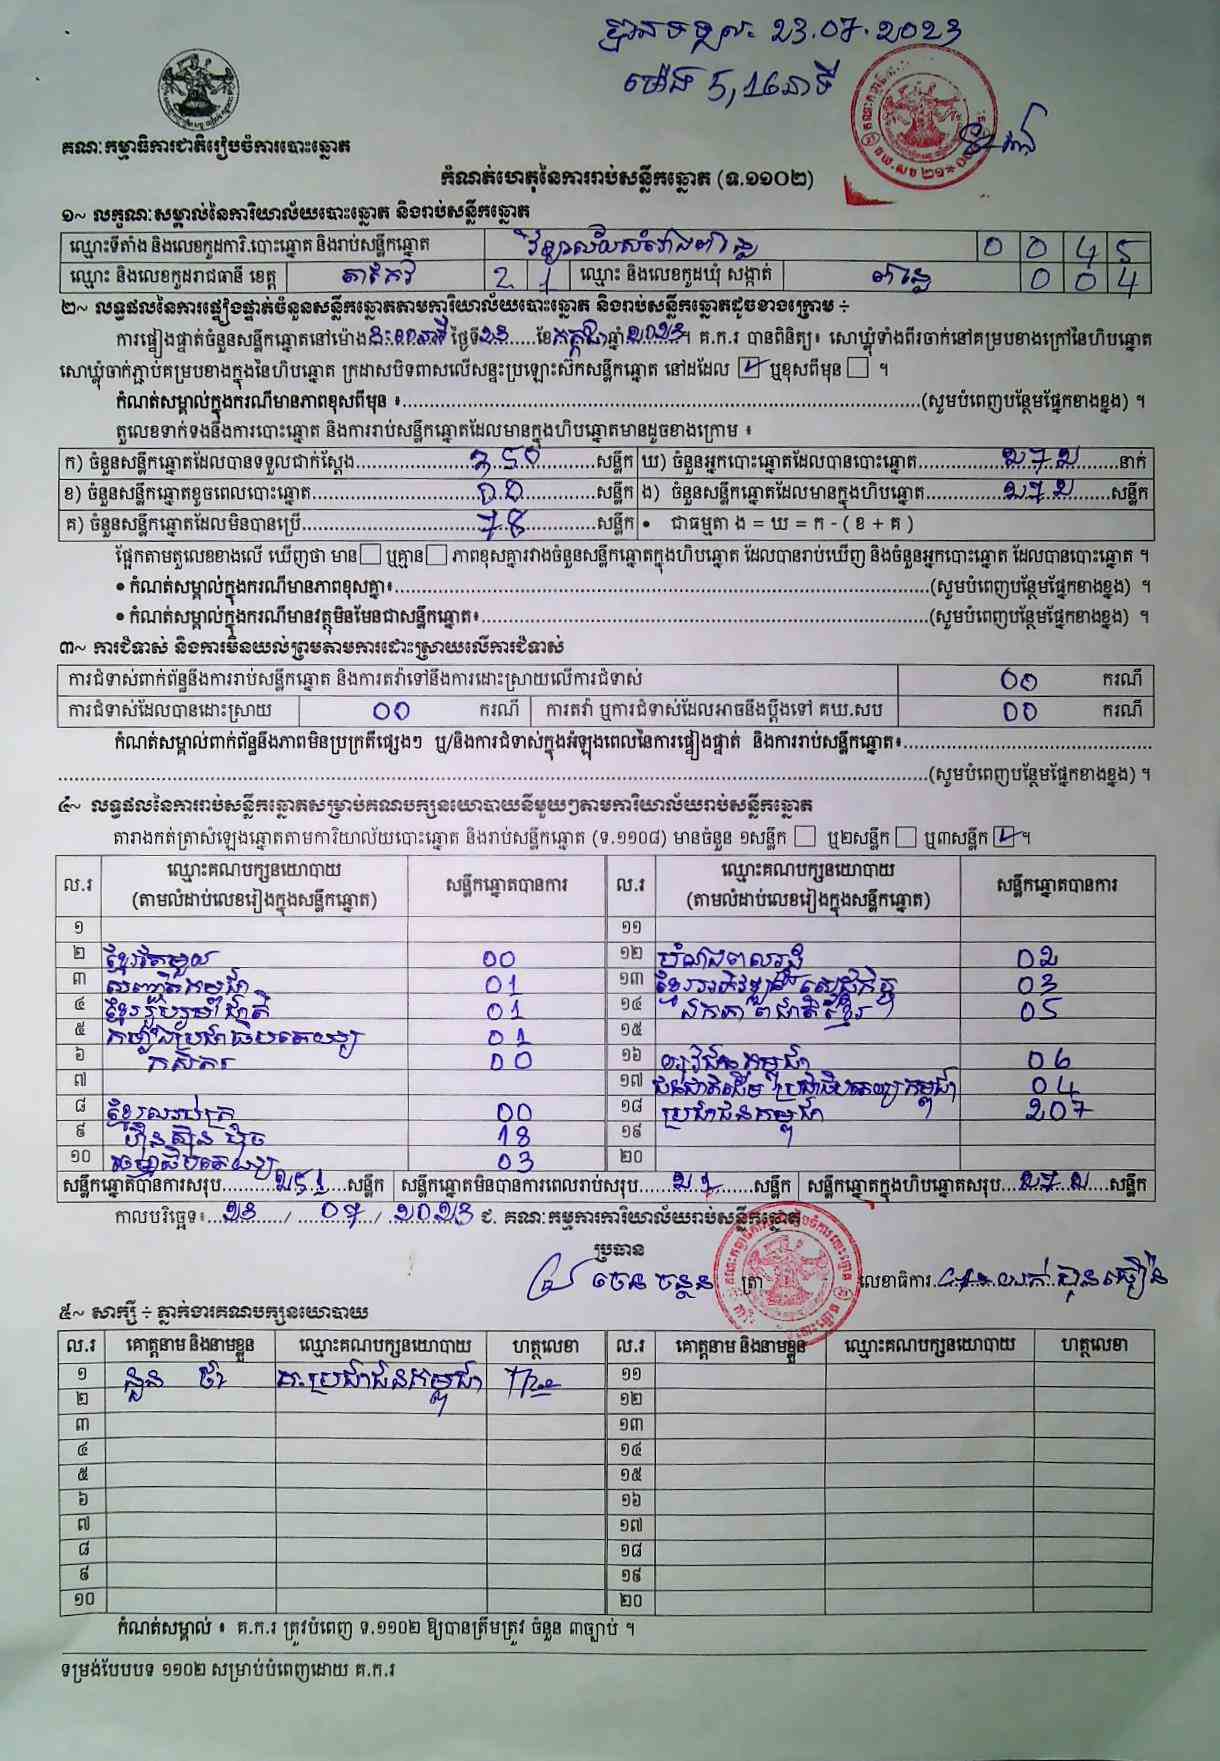 បានទទួល 23.07.2023
ម៉ោង 5,16នាទី
គណៈកម្មាធិការជាតិរៀបចំការបោះឆ្នោត
កំណត់ហេតុនៃការរាប់សន្លឹកឆ្នោត (ទ.១១០២)
១~ លក្ខណៈសម្គាល់នៃការិយាល័យបោះឆ្នោត និងរាប់សន្លឹកឆ្នោត
ឈ្មោះទីតាំង និងលេខកូដការិ.បោះឆ្នោត និងរាប់សន្លឹកឆ្នោត វិទ្យាល័យសំរោង 0 0 4 5
ឈ្មោះ និងលេខកូដរាជធានី ខេត្ត តាកែវ 2 1 ឈ្មោះ និងលេខកូដឃុំ សង្កាត់ 0 0 4
២~ លទ្ធផលនៃការផ្ទៀងផ្ទាត់ចំនួនសន្លឹកឆ្នោតតាមការិយាល័យបោះឆ្នោត និងរាប់សន្លឹកឆ្នោតដូចខាងក្រោម ÷
ការផ្ទៀងផ្ទាត់ចំនួនសន្លឹកឆ្នោតនៅម៉ោង ថ្ងៃទី ២៣ ខែ កក្កដា ឆ្នាំ ២០២៣ ។ គ.ក.រ បានពិនិត្យ៖ សោឃ្លុំទាំងពីរចាក់នៅគម្របខាងក្រៅនៃហិបឆ្នោត
សោឃ្លុំចាក់ភ្ជាប់គម្របខាងក្នុងនៃហិបឆ្នោត ក្រដាសបិទពាសលើសន្ទះប្រឡោះស៊កសន្លឹកឆ្នោត នៅដដែល ☑ ឬខុសពីមុន ☐ ។
កំណត់សម្គាល់ក្នុងករណីមានភាពខុសពីមុន ៖ (សូមបំពេញបន្ថែមផ្នែកខាងខ្នង) ។
តួលេខទាក់ទងនឹងការបោះឆ្នោត និងការរាប់សន្លឹកឆ្នោតដែលមានក្នុងហិបឆ្នោតមានដូចខាងក្រោម ៖
ក) ចំនួនសន្លឹកឆ្នោតដែលបានទទួលជាក់ស្តែង 350 សន្លឹក ឃ) ចំនួនអ្នកបោះឆ្នោតដែលបានបោះឆ្នោត ២៧២ នាក់
ខ) ចំនួនសន្លឹកឆ្នោតខូចពេលបោះឆ្នោត 00 សន្លឹក ង) ចំនួនសន្លឹកឆ្នោតដែលមានក្នុងហិបឆ្នោត ២៧២ សន្លឹក
គ) ចំនួនសន្លឹកឆ្នោតដែលមិនបានប្រើ 78 សន្លឹក • ជាធម្មតា ង = ឃ = ក - ( ខ + គ )
ផ្អែកតាមតួលេខខាងលើ ឃើញថា មាន ☐ ឬគ្មាន ☐ ភាពខុសគ្នារវាងចំនួនសន្លឹកឆ្នោតក្នុងហិបឆ្នោត ដែលបានរាប់ឃើញ និងចំនួនអ្នកបោះឆ្នោត ដែលបានបោះឆ្នោត ។
• កំណត់សម្គាល់ក្នុងករណីមានភាពខុសគ្នា៖ (សូមបំពេញបន្ថែមផ្នែកខាងខ្នង) ។
• កំណត់សម្គាល់ក្នុងករណីមានវត្ថុមិនមែនជាសន្លឹកឆ្នោត៖ (សូមបំពេញបន្ថែមផ្នែកខាងខ្នង) ។
៣~ ការជំទាស់ និងការមិនយល់ព្រមតាមការដោះស្រាយលើការជំទាស់
ការជំទាស់ពាក់ព័ន្ធនឹងការរាប់សន្លឹកឆ្នោត និងការតវ៉ាទៅនឹងការដោះស្រាយលើការជំទាស់ 00 ករណី
ការជំទាស់ដែលបានដោះស្រាយ 00 ករណី ការតវ៉ា ឬការជំទាស់ដែលអាចនឹងប្តឹងទៅ គឃ.សប 00 ករណី
កំណត់សម្គាល់ពាក់ព័ន្ធនឹងភាពមិនប្រក្រតីផ្សេងៗ ឬ/និងការជំទាស់ក្នុងអំឡុងពេលនៃការផ្ទៀងផ្ទាត់ និងការរាប់សន្លឹកឆ្នោត៖
(សូមបំពេញបន្ថែមផ្នែកខាងខ្នង) ។
៤~ លទ្ធផលនៃការរាប់សន្លឹកឆ្នោតសម្រាប់គណបក្សនយោបាយនីមួយៗតាមការិយាល័យរាប់សន្លឹកឆ្នោត
តារាងកត់ត្រាសំឡេងឆ្នោតតាមការិយាល័យបោះឆ្នោត និងរាប់សន្លឹកឆ្នោត (ទ.១១០៨) មានចំនួន ១សន្លឹក ☐ ឬ២សន្លឹក ☐ ឬ៣សន្លឹក ☑ ។
ល.រ ឈ្មោះគណបក្សនយោបាយ (តាមលំដាប់លេខរៀងក្នុងសន្លឹកឆ្នោត) សន្លឹកឆ្នោតបានការ ល.រ ឈ្មោះគណបក្សនយោបាយ (តាមលំដាប់លេខរៀងក្នុងសន្លឹកឆ្នោត) សន្លឹកឆ្នោតបានការ
១ ១១
២ ខ្មែរតែមួយ 00 ១២ បំណងពលរដ្ឋ 02
៣ សញ្ជាតិកម្ពុជា 01 ១៣ ខ្មែរអភិវឌ្ឍន៍សេដ្ឋកិច្ច 03
៤ ខ្មែររួបរួមជាតិ 01 ១៤ ឯកភាពជាតិខ្មែរ 05
៥ កម្លាំងប្រជាធិបតេយ្យ 01 ១៥
៦ កសិករ 00 ១៦ យុវជនកម្ពុជា 06
៧ ១៧ ជនជាតិដើមប្រជាធិបតេយ្យកម្ពុជា 04
៨ ខ្មែរ 00 ១៨ ប្រជាជនកម្ពុជា 207
៩ ហ៊្វុនស៊ិនប៉ិច 18 ១៩
១០ ធម្មាធិបតេយ្យ 03 ២០
សន្លឹកឆ្នោតបានការសរុប ២៥១ សន្លឹក សន្លឹកឆ្នោតមិនបានការពេលរាប់សរុប ២១ សន្លឹក សន្លឹកឆ្នោតក្នុងហិបឆ្នោតសរុប ២៧២ សន្លឹក
កាលបរិច្ឆេទ៖ ២៣ / 07 / 2023 ជ. គណៈកម្មការការិយាល័យរាប់សន្លឹកឆ្នោត
ប្រធាន
ចេន ចន្ថន ត្រា លេខាធិការ
៥~ សាក្សី ÷ ភ្នាក់ងារគណបក្សនយោបាយ
ល.រ គោត្តនាម និងនាមខ្លួន ឈ្មោះគណបក្សនយោបាយ ហត្ថលេខា ល.រ គោត្តនាម និងនាមខ្លួន ឈ្មោះគណបក្សនយោបាយ ហត្ថលេខា
១ នួន ថា គ.ប្រជាជនកម្ពុជា ១១
២ ១២
៣ ១៣
៤ ១៤
៥ ១៥
៦ ១៦
៧ ១៧
៨ ១៨
៩ ១៩
១០ ២០
កំណត់សម្គាល់ ៖ គ.ក.រ ត្រូវបំពេញ ទ.១១០២ ឱ្យបានត្រឹមត្រូវ ចំនួន ៣ច្បាប់ ។
ទម្រង់បែបបទ ១១០២ សម្រាប់បំពេញដោយ គ.ក.រ